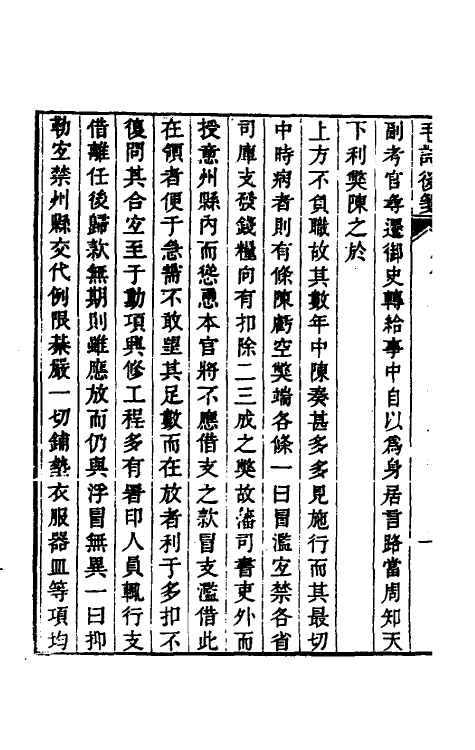 毛詩後箋
副考官尋遷御史轉給事中自以爲身居言路當周知天
下利獘陳之於
上方不負職故其數年中陳奏甚多多見施行而其最切
中時病者則有條陳虧空獘端各條一曰冒濫宜禁各省
司庫支發錢糧向有扣除二三成之獘故藩司書吏外而
授意州縣內而慫慂本官將不應借支之款冒支濫借此
在領者便于急需不敢望其足數而在放者利于多扣不
復問其合宜至于動項興修工程多有署印人員輒行支
借離任後歸款無期則雖應放而仍與浮冒無異一曰抑
勒宜禁州縣交代例限綦嚴一切鋪墊衣服器皿等項均
一